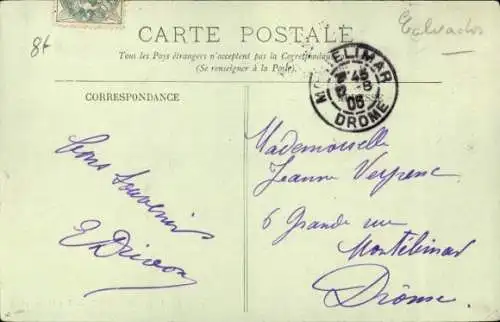 8t
CARTE POSTALE
Calvados
Tous les Pays étrangers n'acceptent pas la Correspondance
(Se renseigner à la Poste).
MONTELIMAR
DROME
05
CORRESPONDANCE
Bons souvenirs
Mademoiselle
Jeanne
6 Grande rue
Montélimar
Drôme